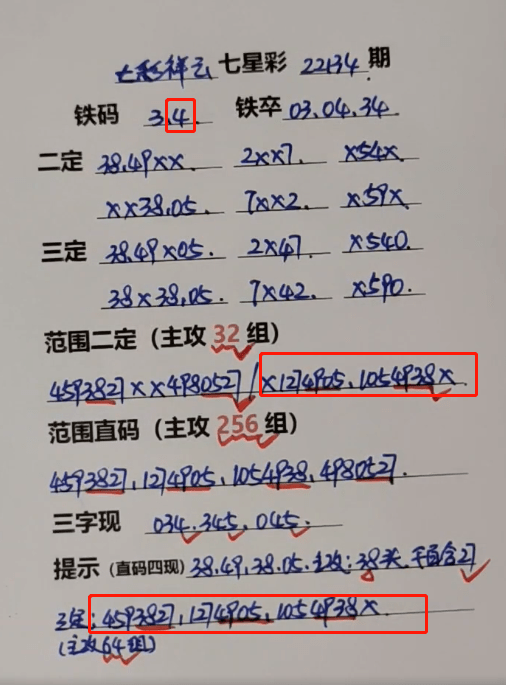 七彩祥云 七星彩 22134 期
铁码 3.4. 铁卒 03.04.34
二定 38.49xx. 2xx7. x54x.
xx38.05. 7xx2. x59x.
三定 38.49x05. 2x47. x540.
38x38.05. 7x42. x590.
范围二定（主攻 32 组）
4593827xx4980527/x1274905.1054938x.
范围直码（主攻 256 组）
4593827,1274905.1054938.4980527.
三字现 034.345.045.
提示（直码四现）38.49.38.05.主攻:38头.千百含27
三定:4593827,1274905.1054938x.
(主攻64组)